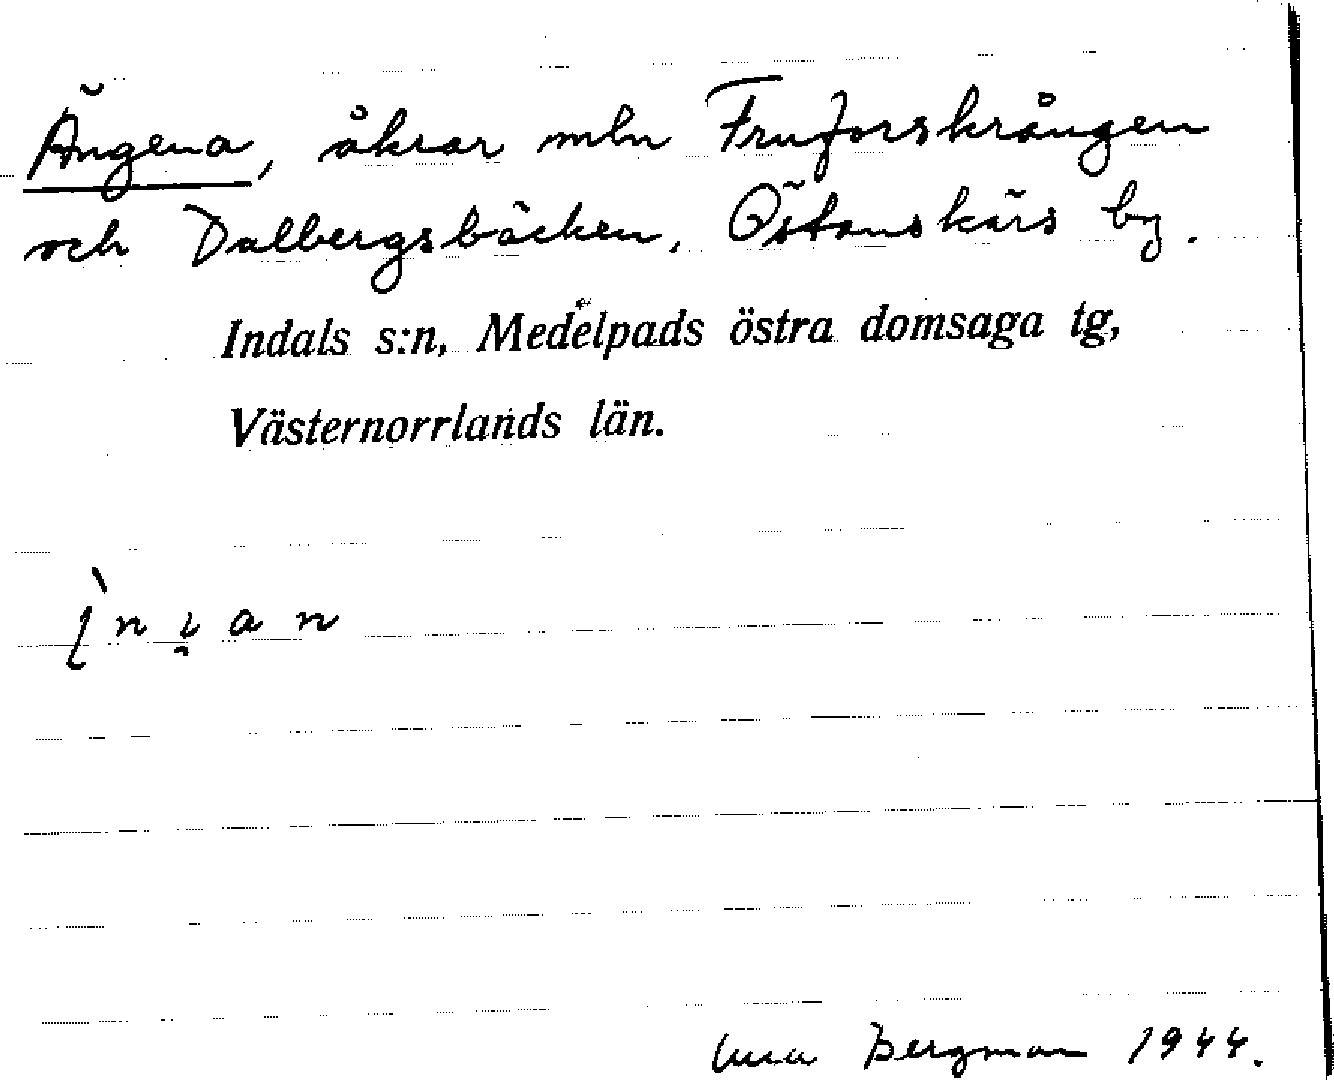 Ängena, åkrar mln Fruforskrången
och Dalbergsbäcken, Östanskärs by.
Indals s:n, Medelpads östra domsaga tg,
Västernorrlands län.
Bergman 1944.